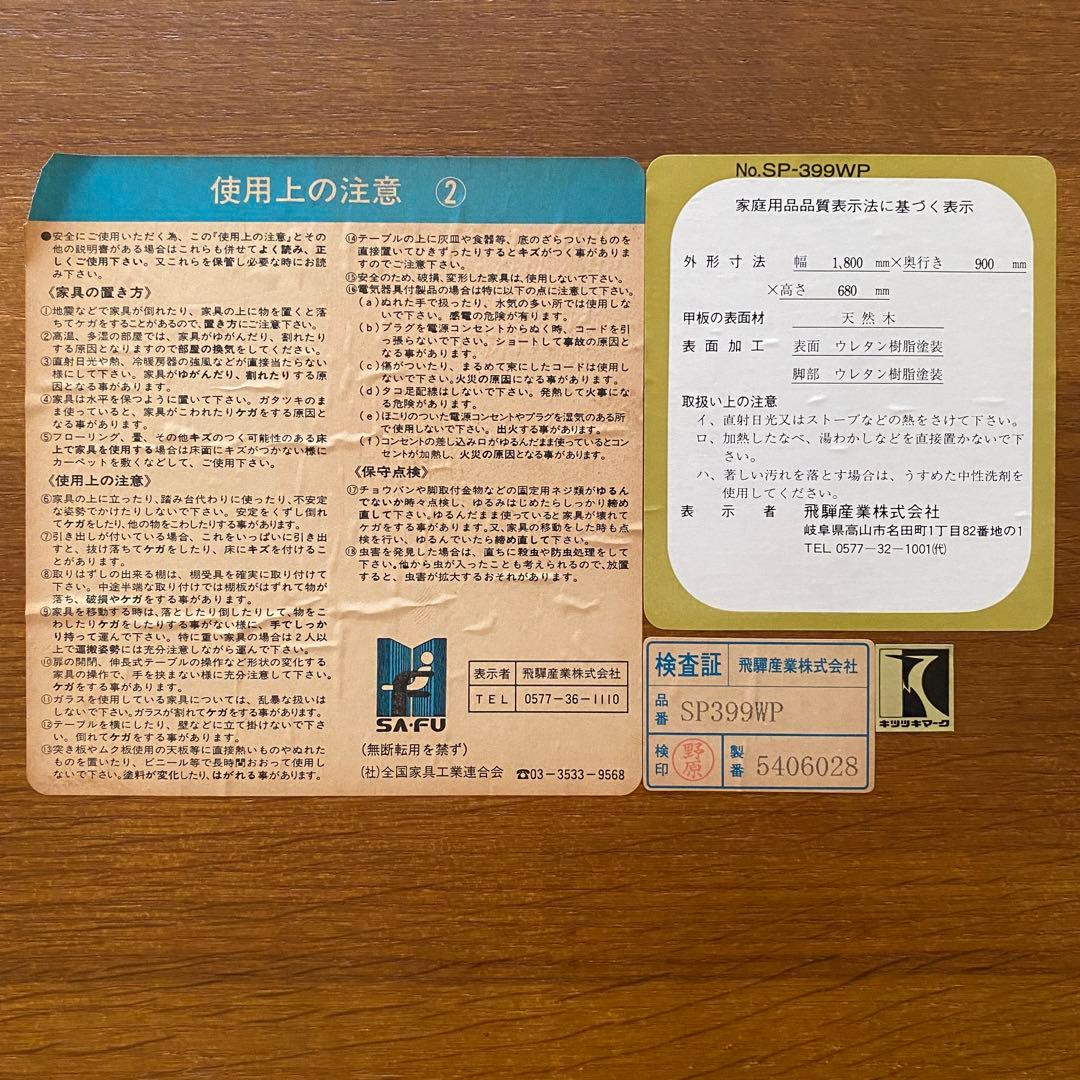 使用上の注意 ②
●安全にご使用いただく為、この『使用上の注意』とその
他の説明書がある場合はこれらも併せてよく読み、正
しくご使用下さい。又これらを保管し必要な時にお読
み下さい。
《家具の置き方》
①地震などで家具が倒れたり、家具の上に物を置くと落
ちてケガをすることがあるので、置き方にご注意下さい。
②高温、多湿の部屋では、家具がゆがんだり、割れたり
する原因となりますので部屋の換気をしてください。
③直射日光や熱、冷暖房器の強風などが直接当たらない
様にして下さい。家具がゆがんだり、割れたりする原
因となる事があります。
④家具は水平を保つように置いて下さい。ガタツキのま
ま使っていると、家具がこわれたりケガをする原因と
なる事があります。
⑤フローリング、畳、その他キズのつく可能性のある床
上で家具を使用する場合は床面にキズがつかない様に
カーペットを敷くなどして、ご使用下さい。
《使用上の注意》
⑥家具の上に立ったり、踏み台代わりに使ったり、不安定
な姿勢でかけたりしないで下さい。安定をくずし倒れ
てケガをしたり、他の物をこわしたりする事があります。
⑦引き出しが付いている場合、これをいっぱいに引き出
すと、抜け落ちてケガをしたり、床にキズを付けるこ
とがあります。
⑧取りはずしの出来る棚は、棚受具を確実に取り付けて
下さい。中途半端な取り付けでは棚板がはずれて物が
落ち、破損やケガをする事があります。
⑨家具を移動する時は、落としたり倒したりして、物をこ
わしたりケガをしたりする事がない様に、手でしっか
り持って運んで下さい。特に重い家具の場合は2人以上
で運搬姿勢には充分注意しながら運んで下さい。
⑩扉の開閉、伸長式テーブルの操作など形状の変化する
家具の操作で、手を挟まない様に充分注意して下さい。
ケガをする事があります。
⑪ガラスを使用している家具については、乱暴な扱いは
しないで下さい。ガラスが割れてケガをする事があります。
⑫テーブルを横にしたり、壁などに立て掛けないで下さ
い。倒れてケガをする事があります。
⑬突き板やムク板使用の天板等に直接熱いものやぬれた
ものを置いたり、ビニール等で長時間おおって使用し
ないで下さい。塗料が変化したり、はがれる事があります。
⑭テーブルの上に灰皿や食器等、底のざらついたものを
直接置いてひきずったりするとキズがつく事がありま
すのでご注意下さい。
⑮安全のため、破損、変形した家具は、使用しないで下さい。
⑯電気器具付製品の場合は特に以下の点に注意して下さい。
(a)ぬれた手で扱ったり、水気の多い所では使用しな
いで下さい。感電の危険が有ります。
(b)プラグを電源コンセントからぬく時、コードを引
っ張らないで下さい。ショートして事故の原因と
なる事があります。
(c)傷がついたり、まるめて束にしたコードは使用し
ないで下さい。火災の原因になる事があります。
(d)タコ足配線はしないで下さい。発熱して火事にな
る危険があります。
(e)ほこりのついた電源コンセントやプラグを湿気のある所で
使用しないで下さい。出火する事があります。
(f)コンセントの差し込み口がゆるんだまま使っているとコン
セントが加熱し、火災の原因となる事があります。
《保守点検》
⑰チョウバンや脚取付金物などの固定用ネジ類がゆるん
でないか時々点検し、ゆるみはじめたらしっかり締め
直して下さい。ゆるんだまま使っていると家具が壊れて
ケガをする事があります。又、家具の移動をした時も点
検を行い、ゆるんでいたら締め直して下さい。
⑱虫害を発見した場合は、直ちに殺虫や防虫処理をして
下さい。他から虫が入ったことも考えられるので、放置
すると、虫害が拡大するおそれがあります。
SA・FU
表示者 飛騨産業株式会社
TEL 0577-36-1110
(無断転用を禁ず)
(社)全国家具工業連合会 ☎03-3533-9568
No.SP-399WP
家庭用品品質表示法に基づく表示
外形寸法 幅 1,800 mm×奥行き 900 mm
×高さ 680 mm
甲板の表面材 天然木
表面加工 表面 ウレタン樹脂塗装
脚部 ウレタン樹脂塗装
取扱い上の注意
イ、直射日光又はストーブなどの熱をさけて下さい。
ロ、加熱したなべ、湯わかしなどを直接置かないで下
さい。
ハ、著しい汚れを落とす場合は、うすめた中性洗剤を
使用してください。
表示者 飛騨産業株式会社
岐阜県高山市名田町1丁目82番地の1
TEL 0577-32-1001(代)
検査証 飛騨産業株式会社
品番 SP399WP
検印 野原 製番 5406028
キツツキマーク